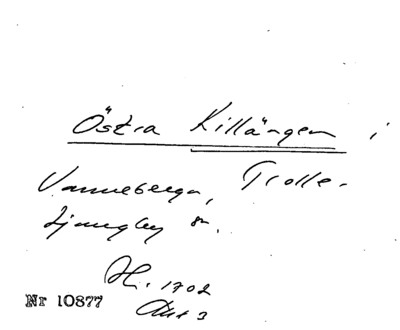 Östra Killängen i
Vanneberga, Trolle-
Ljungby sn.
H. 1702
Akt 3
Nr 10877